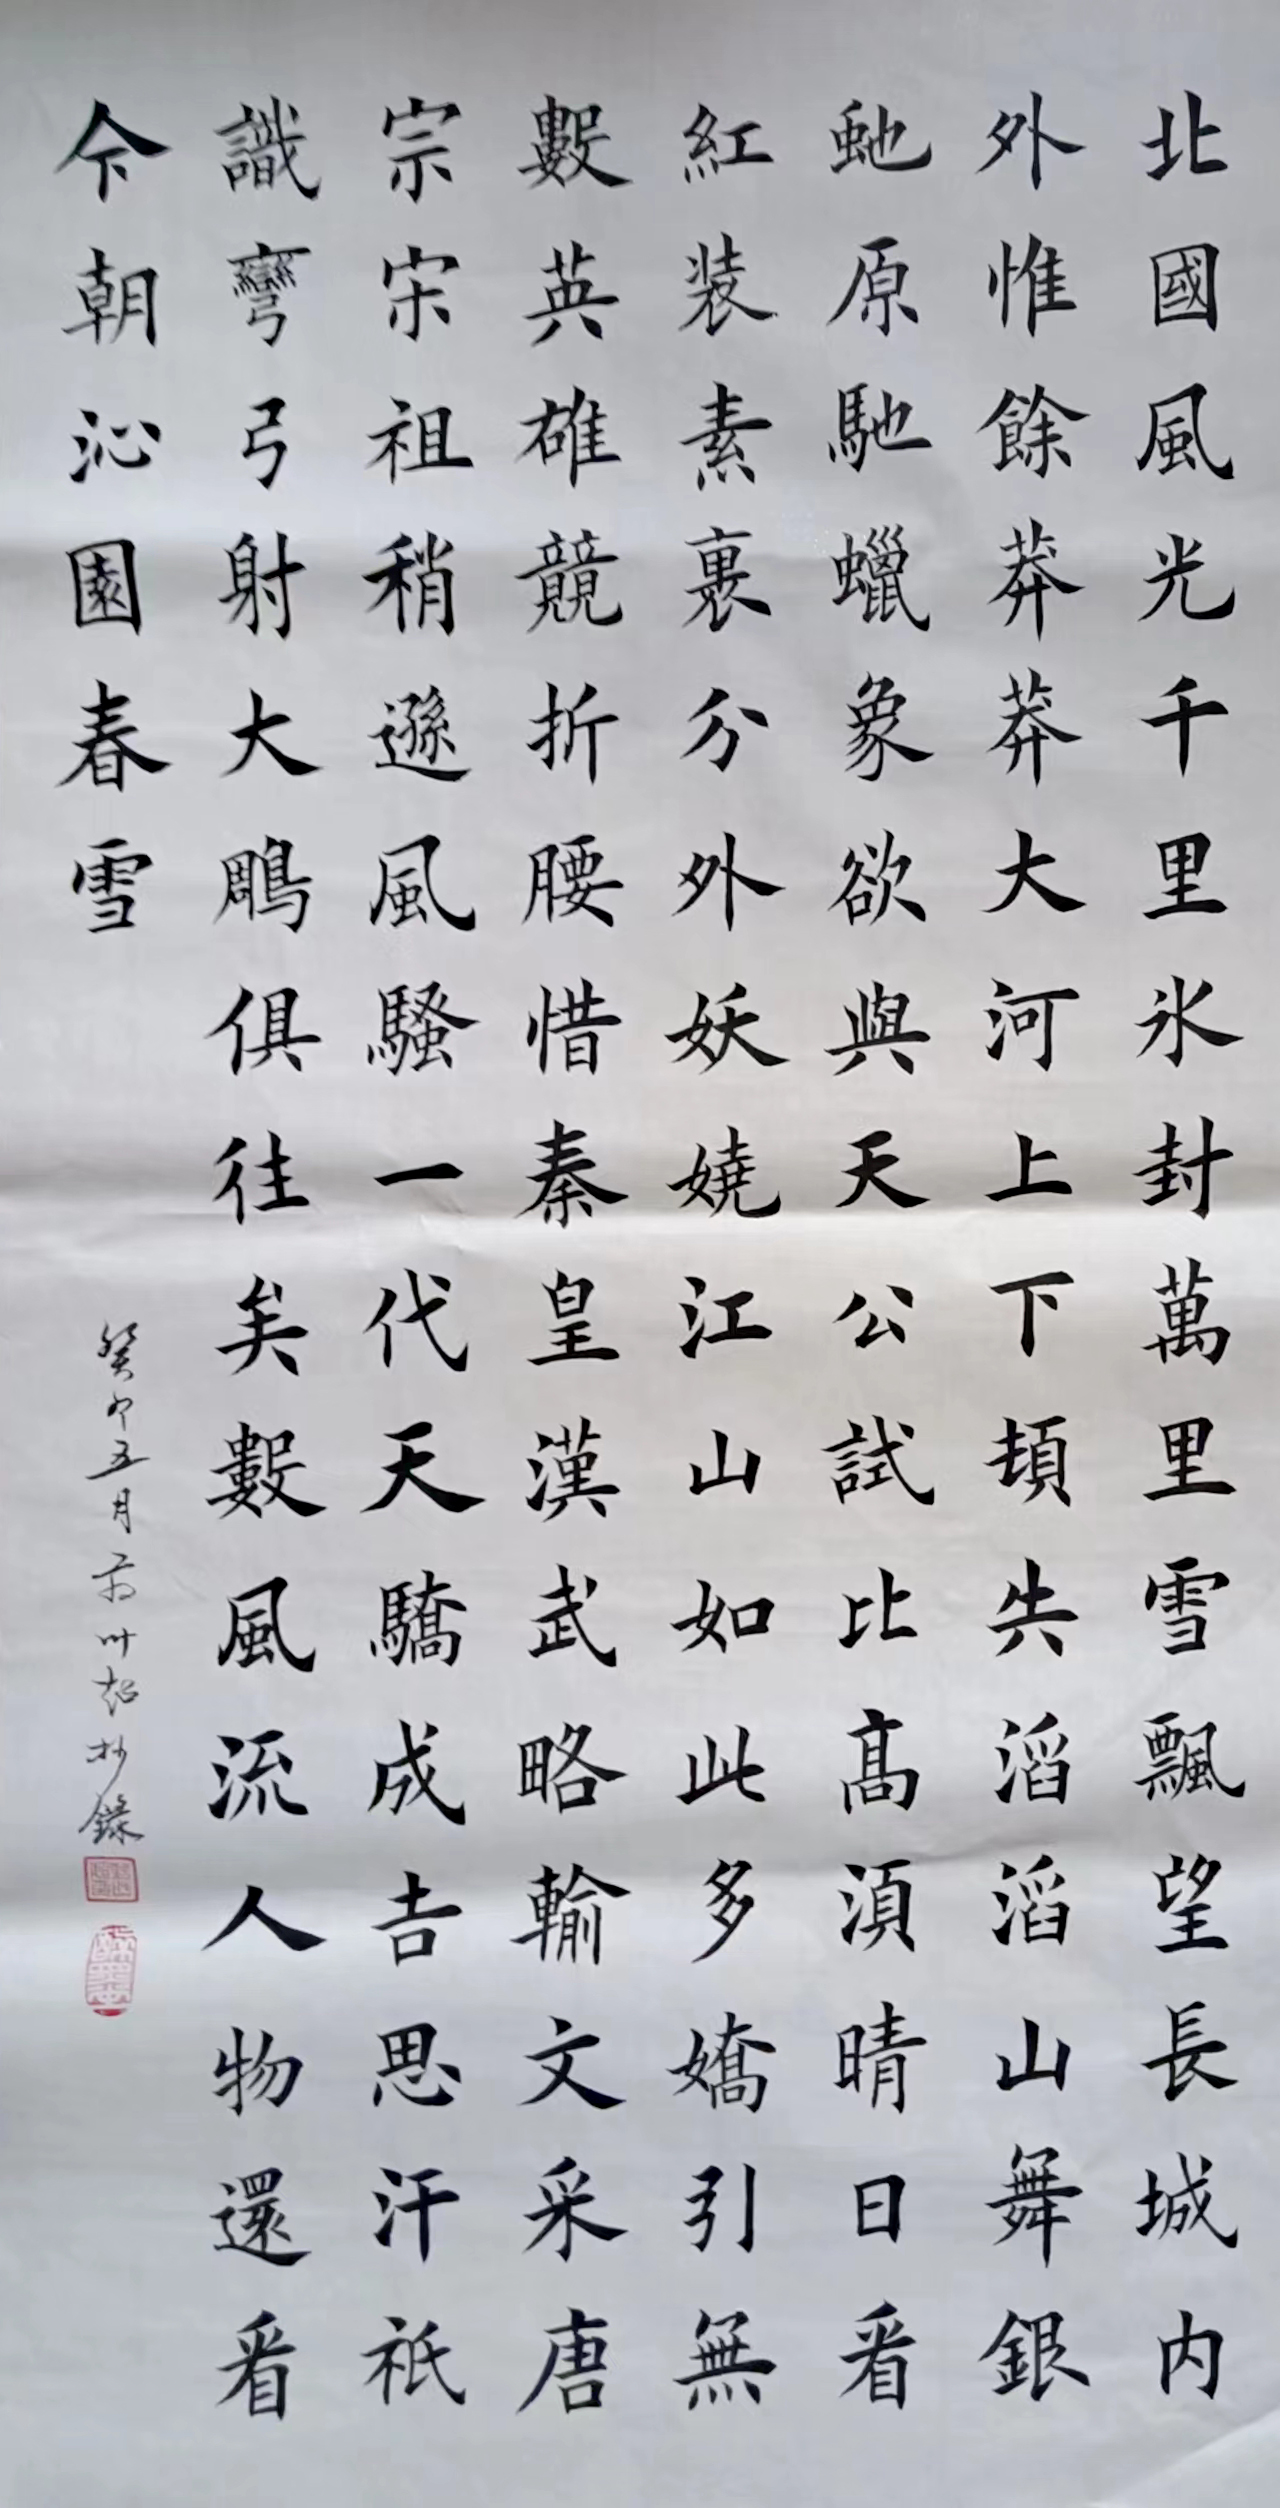 北國風光千里氷封萬里雪飄望長城内
外惟餘莽莽大河上下頓失滔滔山舞銀
虵原馳蠟象欲與天公試比髙湏晴日看
紅装素裹分外妖嬈江山如此多嬌引無
數英雄競折腰惜秦皇漢武略輸文采唐
宗宋祖稍遜風騷一代天驕成吉思汗祇
識彎弓射大鵰俱往矣數風流人物還看
今朝沁園春雪
癸卯五月 抄錄